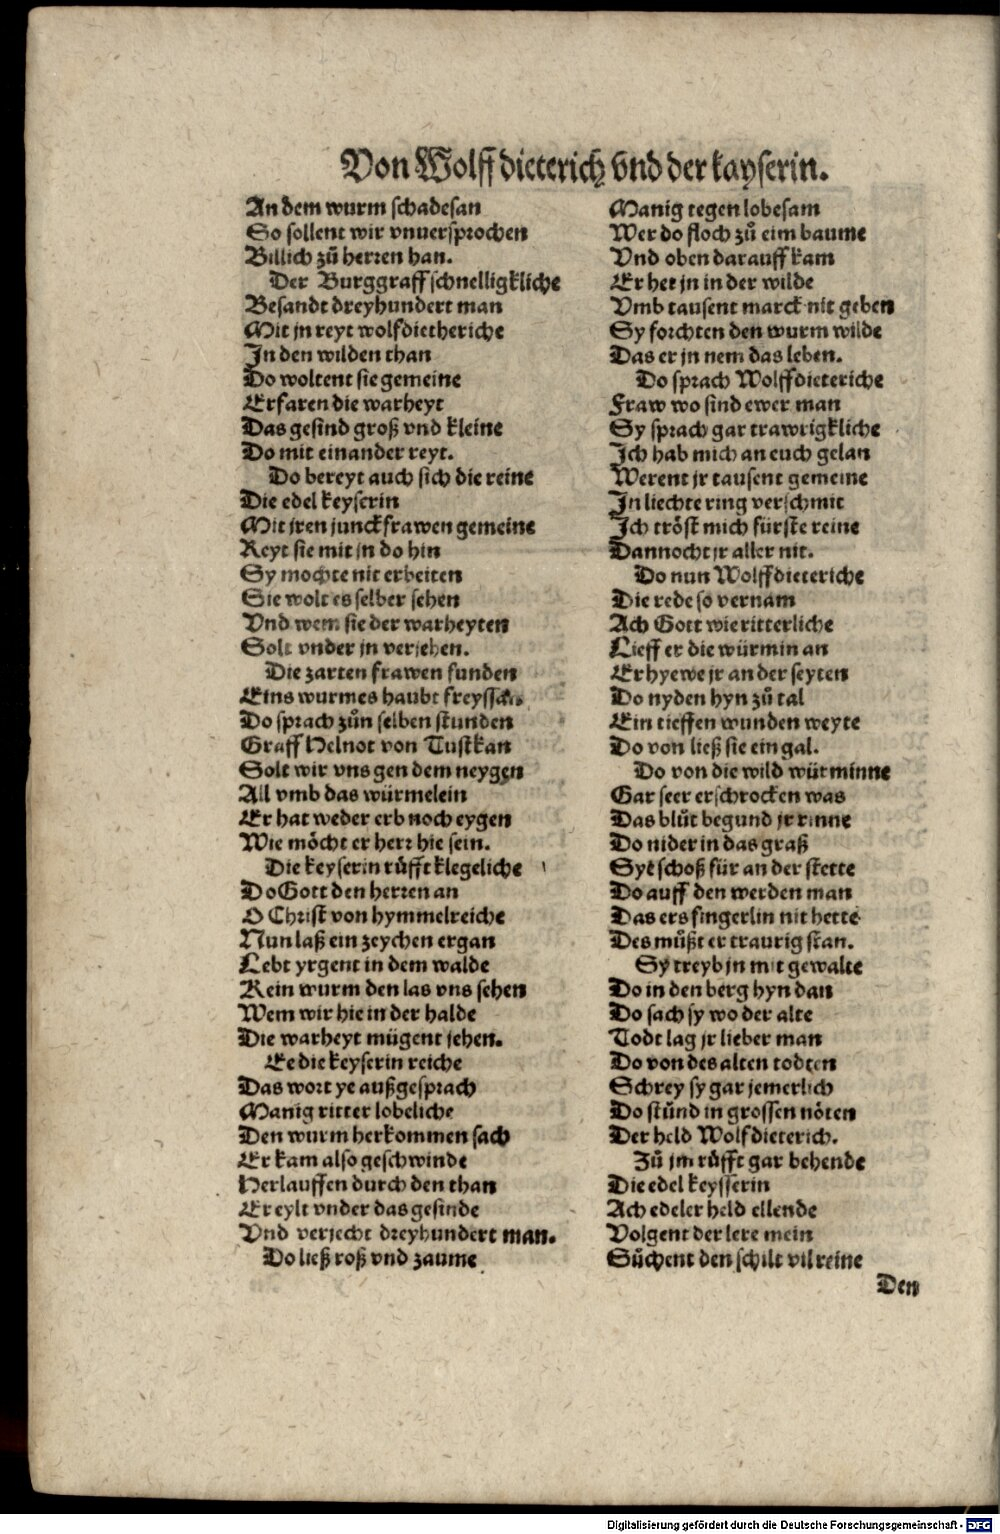 Von Wolff dieterich vnd der kayserin.
An dem wurm schadesan
So sollent wir vnuersprochen
Billich zů herren han.
Der Burggraff schnelligkliche
Besandt dreyhundert man
Mit jn reyt wolfdietheriche
In den wilden than
Do woltent sie gemeine
Erfaren die warheyt
Das gesind groß vnd kleine
Do mit einander reyt.
Do bereyt auch sich die reine
Die edel keyserin
Mit jren junckfrawen gemeine
Reyt sie mit jn do hin
Sy mochte nit erbeiten
Sie wolt es selber sehen
Vnd wem sie der warheyten
Solt vnder jn verjehen.
Die zarten frawen funden
Eins wurmes haubt freyssan.
Do sprach zůn selben stunden
Graff Helnot von Tuskan
Solt wir vns gen dem neygen
All vmb das würmelein
Er hat weder erb noch eygen
Wie möcht er herr hie sein.
Die keyserin růfft klegeliche
Do Gott den herren an
O Christ von hymmelreiche
Nun laß ein zeychen ergan
Lebt yrgent in dem walde
Kein wurm den las vns sehen
Wem wir hie in der halde
Die warheyt mügent jehen.
Ee die keyserin reiche
Das wort ye außgesprach
Manig ritter lobeliche
Den wurm herkommen sach
Er kam also geschwinde
Herlauffen durch den than
Er eylt vnder das gesinde
Vnd verjecht dreyhundert man.
Do ließ roß vnd zaume
Manig tegen lobesam
Wer do floch zů eim baume
Vnd oben darauff kam
Er het jn in der wilde
Vmb tausent marck nit geben
Sy forchten den wurm wilde
Das er jn nem das leben.
Do sprach Wolffdieteriche
Fraw wo sind ewer man
Sy sprach gar trawrigkliche
Ich hab mich an euch gelan
Werent jr tausent gemeine
In liechte ring verschmit
Ich tröst mich fürste reine
Dannocht jr aller nit.
Do nun Wolffdieteriche
Die rede so vernam
Ach Gott wie ritterliche
Lieff er die würmin an
Er hyewe jr an der seyten
Do nyden hyn zů tal
Ein tieffen wunden weyte
Do von ließ sie ein gal.
Do von die wild würminne
Gar seer erschrocken was
Das blůt begund jr rinne
Do nider in das graß
Sye schoß für an der stette
Do auff den werden man
Das ers fingerlin nit hette
Des můßt er traurig stan.
Sy treyb jn mit gewalte
Do in den berg hyn dan
Do sach sy wo der alte
Todt lag jr lieber man
Do von des alten todten
Schrey sy gar jemerlich
Do stůnd in grossen nöten
Der held Wolfdieterich.
Zů jm růfft gar behende
Die edel keysserin
Ach edeler held ellende
Volgent der lere mein
Sůchent den schilt vil reine
Den
Digitalisierung gefördert durch die Deutsche Forschungsgemeinschaft - DFG